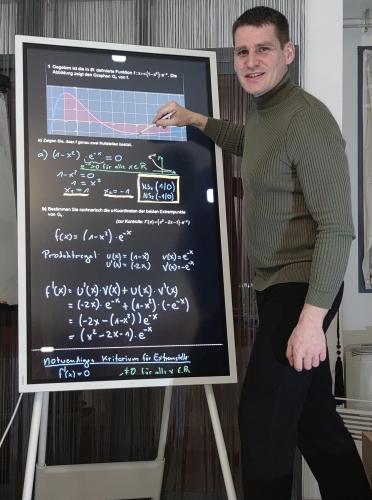 1 Gegeben ist die in ℝ definierte Funktion f: x ↦ (1-x²)·e⁻ˣ. Die
Abbildung zeigt den Graphen G_f von f.
a) Zeigen Sie, dass f genau zwei Nullstellen besitzt.
a) (1-x²) · e⁻ˣ = 0
≠0 für alle x ∈ ℝ
1-x² = 0
1 = x²
x₁ = 1 x₂ = -1
NS₁ (1/0)
NS₂ (-1/0)
b) Bestimmen Sie rechnerisch die x-Koordinaten der beiden Extrempunkte
von G_f.
(zur Kontrolle: f'(x) = (x²-2x-1)·e⁻ˣ)
f(x) = (1-x²)·e⁻ˣ
Produktregel: u(x) = (1-x²) v(x) = e⁻ˣ
u'(x) = (-2x) v'(x) = -e⁻ˣ
f'(x) = u'(x)·v(x) + u(x)·v'(x)
= (-2x)·e⁻ˣ + (1-x²)·(-e⁻ˣ)
= (-2x-(1-x²))e⁻ˣ
= (x²-2x-1)·e⁻ˣ
Notwendiges Kriterium für Extremstelle
f'(x) = 0 ≠0 für alle x ∈ ℝ